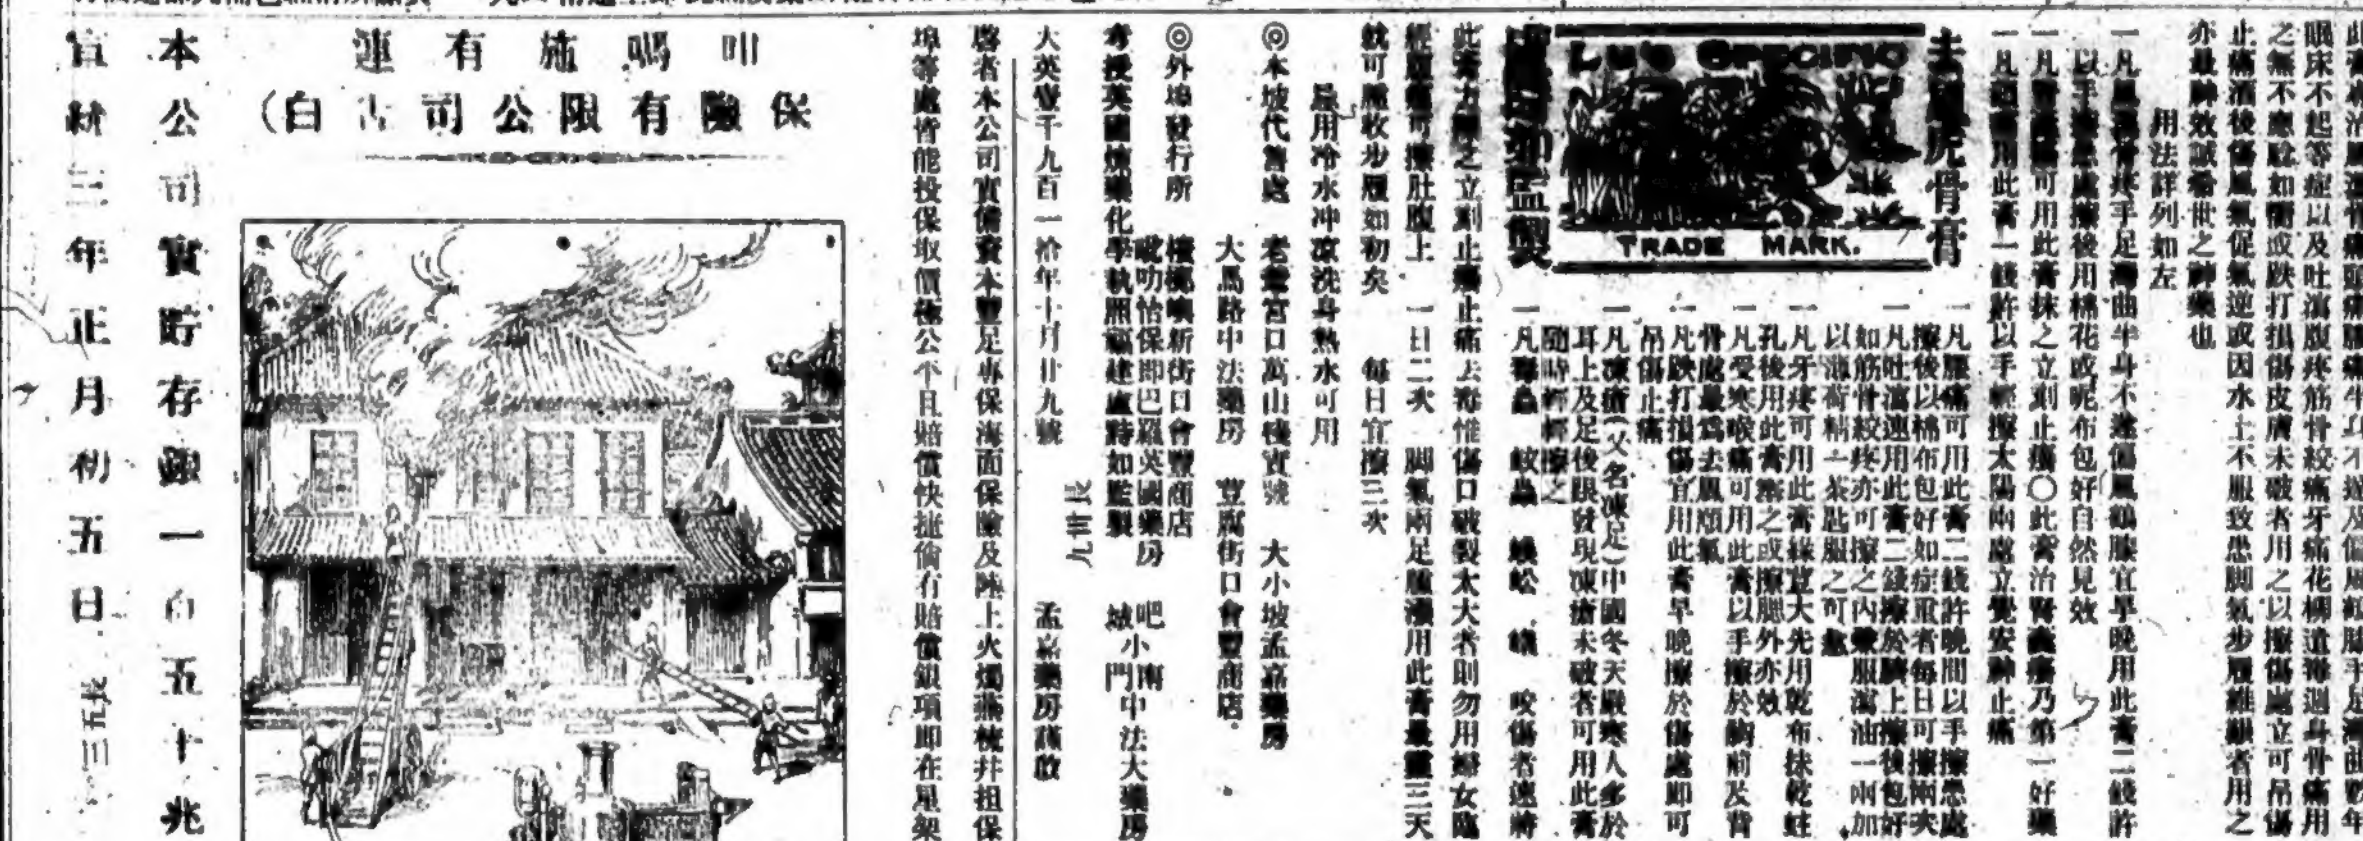 止痛酒後傷風氣促氣逆或因水土不服致患脚氣步履維艱者用之
亦最神效誠希世之神藥也
用法詳列如左
一凡風濕骨疼手足灣曲半身不遂偏風鶴膝宜早晚用此膏二錢許
以手擦患處擦後用棉花或呢布包好自然見效
可用此膏抹之立刻止癢〇此膏治腎囊癢乃第一好藥
用此膏一錢許以手輕擦太陽兩處立覺安神止痛
去風虎骨膏
Lu's SPECIFIC
TRADE MARK.
監製
一凡腰痛可用此膏二錢許晚間以手擦患處
擦後以棉布包好如症重者每日可擦兩次
一凡吐瀉速用此膏二錢擦於臍上擦後包好
如筋骨絞疼亦可擦之內要服瀉油一兩加
以薄荷精一茶匙服之可愈
一凡牙疼可用此膏綠荳大先用乾布抹乾蛀
孔後用此膏塞之或擦腮外亦效
一凡受寒喉痛可用此膏以手擦於胸前及背
骨處最為去風順氣
一凡跌打損傷宜用此膏早晚擦於傷處即可
吊傷止痛
一凡凍瘡(又名凍足)中國冬天嚴寒人多於
耳上及足後跟發現凍瘡未破者可用此膏
隨時輕輕擦之
一凡毒蟲 蚊蟲 蜈蚣 蟻 咬傷者速將
此膏力擦之立刻止癢止痛去毒惟傷口破裂太大者則勿用婦女臨
經腹痛可擦肚腹上 一日二次 脚氣兩足腫滿用此膏最靈三天
就可腫收步履如初矣 每日宜擦三次
忌用冷水冲凉洗身熱水可用
◎本坡代售處 老爺宮口萬山棧寶號 大小坡孟嘉藥房
大馬路中法藥房 荳腐街口會豐商店
◎外埠發行所 檳榔嶼新街口會豐商店
吡叻怡保即巴羅英國藥房 吧城小南門中法大藥房
考授英國燐藥化學執照福建盧時如監製
大英壹千九百一拾年十月廿九號 孟嘉藥房謹啟
啓者本公司實備資本豐足專保海面保險及陸上火燭燕梳并担保
埠等處皆能投保取價極公平且賠償快捷倘有賠償銀項即在星架
叻嗎施有連
保險有限公司告白)
本公司實貯存銀一百五十兆
宣統三年正月初五日